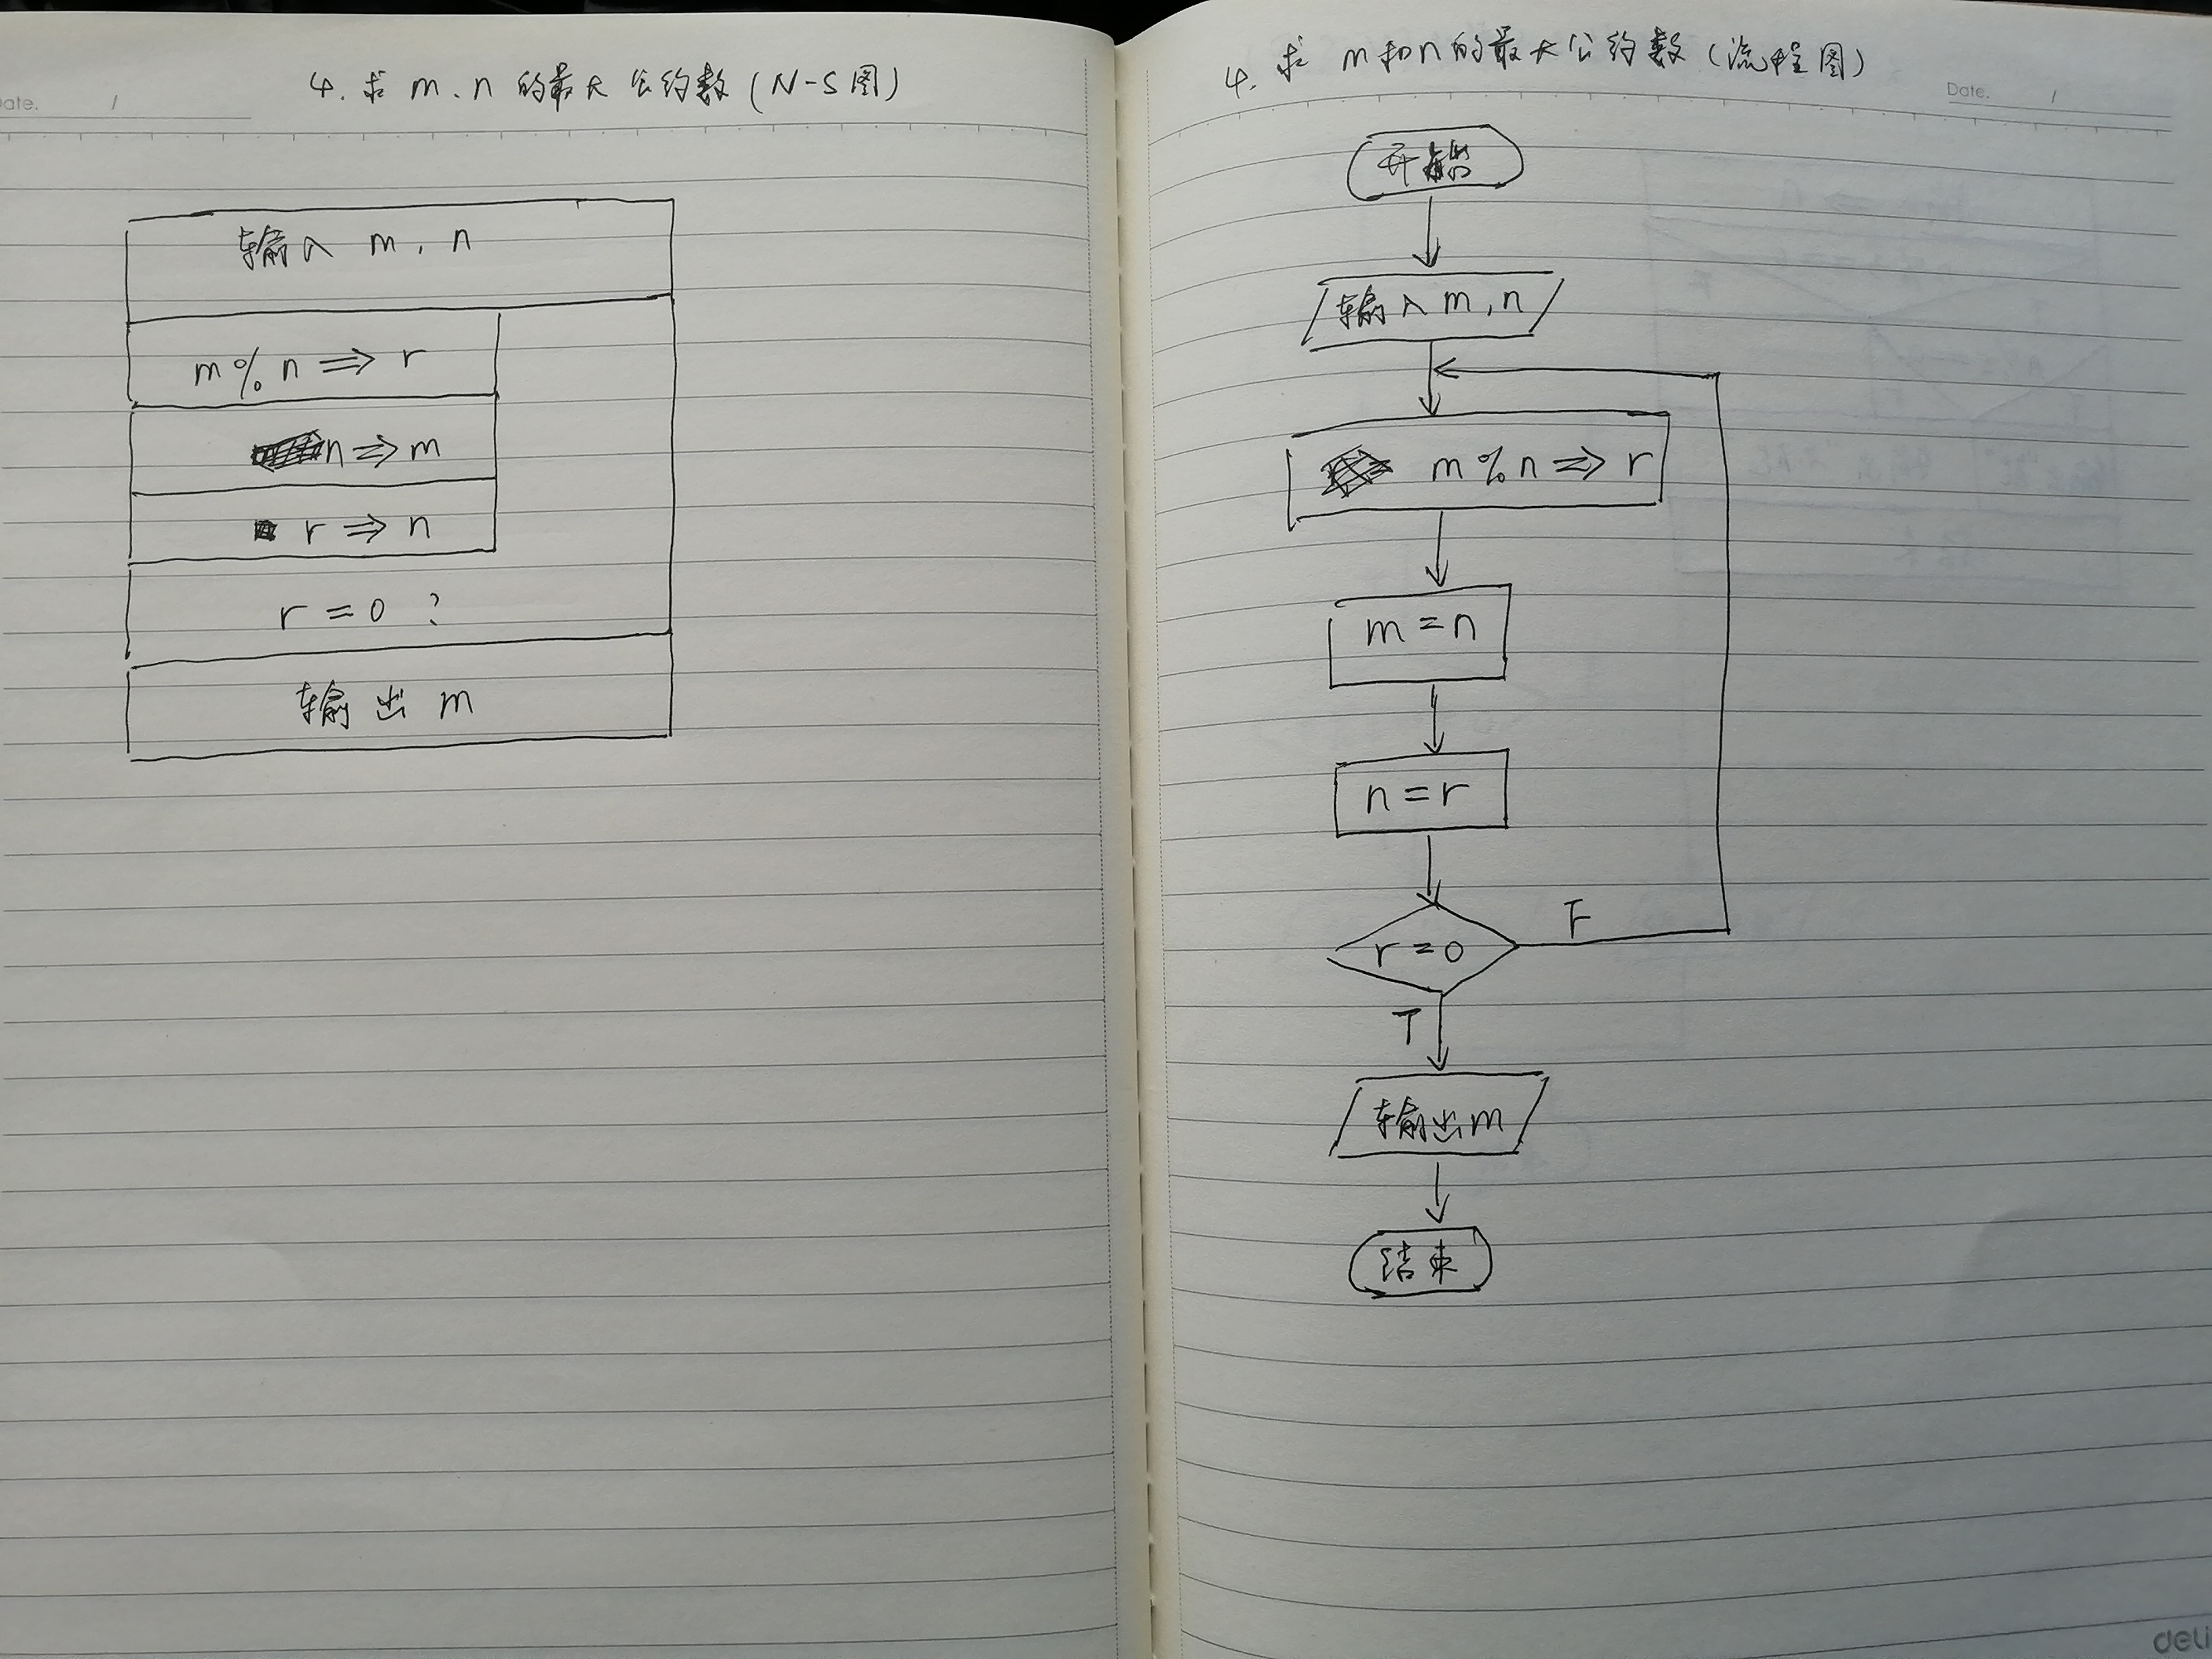 Date. /
4. 求 m、n 的最大公约数 (N-S图)
输入 m, n
m % n ⇒ r
n ⇒ m
r ⇒ n
r = 0 ?
输出 m
4. 求 m和n的最大公约数 (流程图)
Date. /
开始
输入 m, n
m % n ⇒ r
m = n
n = r
r = 0
F
T
输出m
结束
deli